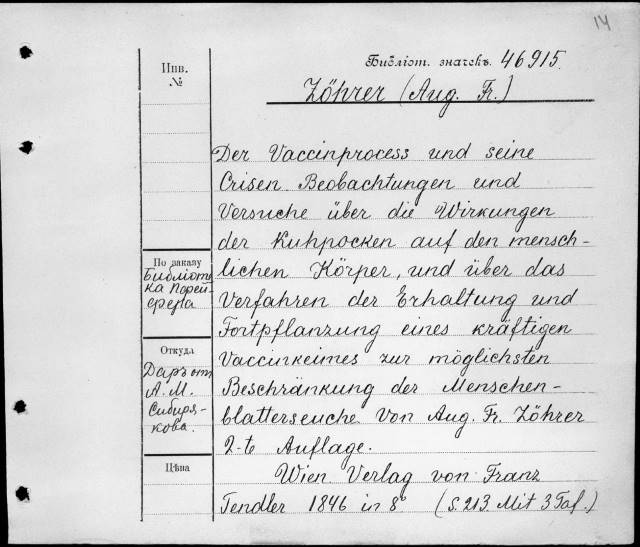 14
Инв.
№
Библіот. значекъ. 46915.
Zöhrer (Aug. Fr.)
Der Vaccinprocess und seine
Crisen. Beobachtungen und
Versuche über die Wirkungen
der Kuhpocken auf den mensch-
lichen Körper, und über das
Verfahren der Erhaltung und
Fortpflanzung eines kräftigen
Vaccinkeimes zur möglichsten
Beschränkung der Menschen-
blatterseuche. Von Aug. Fr. Zöhrer
2-te Auflage.
Wien. Verlag von Franz
Tendler 1846 in 8° (S. 213. Mit 3 Taf.)
По заказу
Библіоте
ка Порей-
сфера
Откуда
Даръ от
А. М.
Сибиря-
кова.
Цѣна